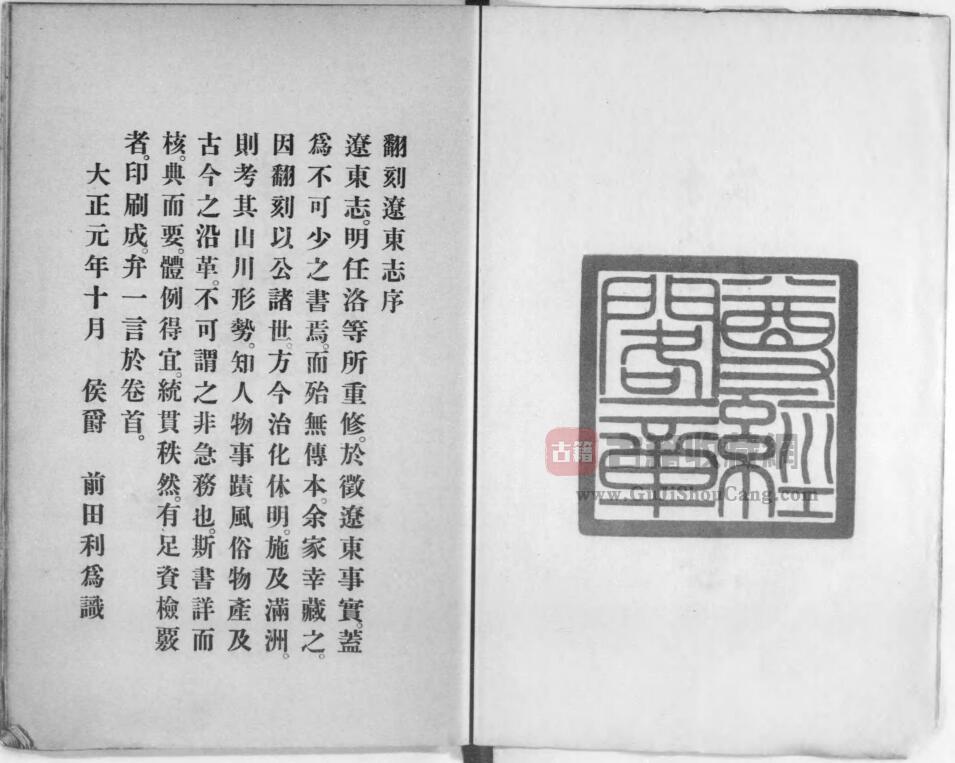 尊經
閣章
古籍
www.GuJiShouCang.com
翻刻遼東志序
遼東志。明任洛等所重修。於徵遼東事實。蓋
爲不可少之書焉。而殆無傳本。余家幸藏之。
因翻刻以公諸世。方今治化休明。施及滿洲。
則考其山川形勢。知人物事蹟風俗物產及
古今之沿革。不可謂之非急務也。斯書詳而
核。典而要。體例得宜。統貫秩然。有足資檢覈
者。印刷成。弁一言於卷首。
大正元年十月　侯爵　前田利爲識